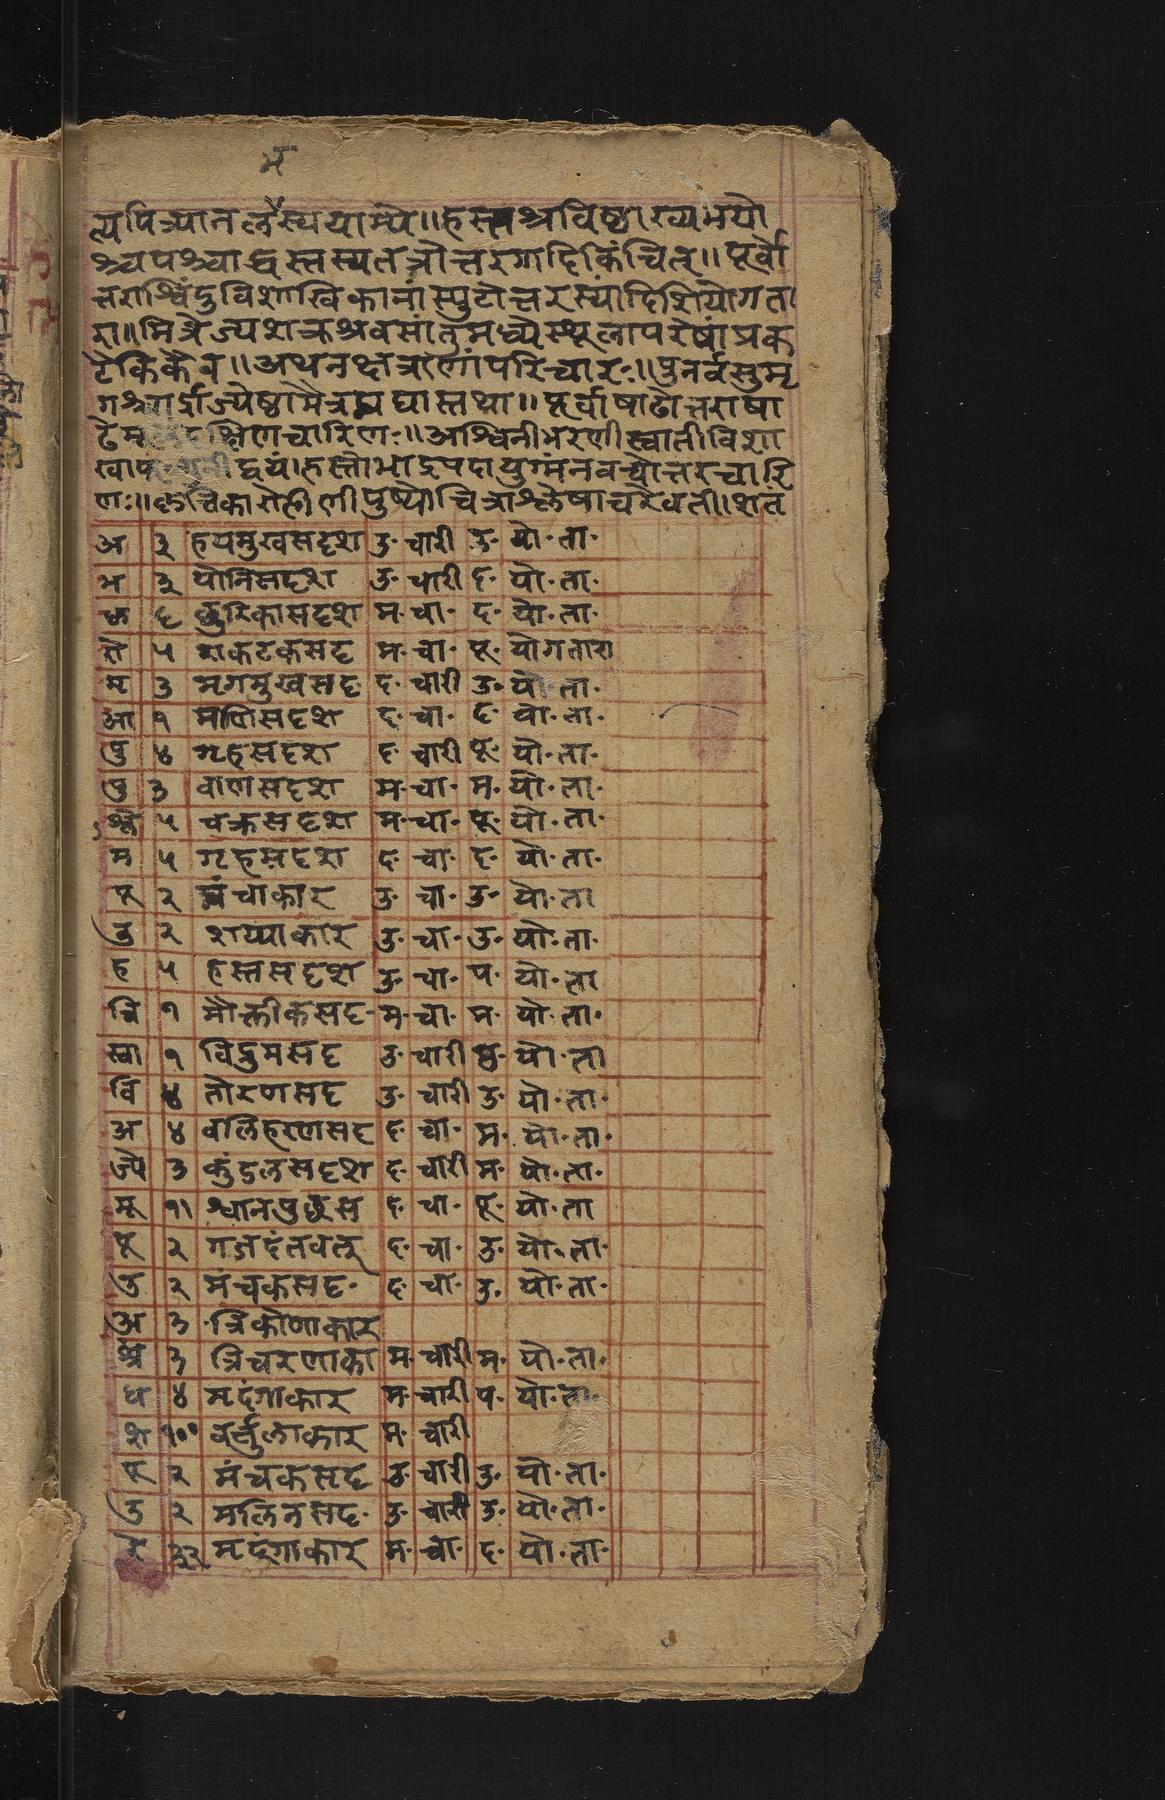 म
त्यपित्र्यानलस्ययाम्ये॥हस्तश्रविष्ठाख्यभयो
श्चपश्चाद्धस्तस्यतत्रोत्तरगादिकिंचित्॥पूर्वो
त्तराश्विंदुविशाखिकानांस्फुटोत्तरस्यांदिशियोगता
रा॥मित्रेज्यशक्रश्रवसांतुमध्येस्थूलापरेषां
॥अथनक्षत्राणांपरिचारः॥पुनर्वसुमृ
गश्चार्द्राज्येष्ठामैत्रमघास्तथा॥पूर्वाषाढोत्तराषा
ढेमू दक्षिणचारिणः॥अश्विनीभरणीस्वातीविशा
खाफल्गुनीद्वयं।हस्तोभाद्रपदायुग्मंनवच्योत्तरचारि
णः॥कृत्तिकारोहिणीपुष्योचित्राश्लेषाचरेवती।शतं
अ ३ हयमुखसदृश उ॰ चारी उ॰ यो॰ता॰
भ ३ योनिसदृश उ॰ चारी द॰ यो॰ता॰
कृ ६ छुरिकासदृश म॰ चा॰ द॰ यो॰ता॰
रो ५ शकटकसदृ म॰ चा॰ पू॰ योगतारा
मृ ३ मृगमुखसदृ द॰ चारी उ॰ यो॰ता॰
आ १ मणिसदृश द॰ चा॰ द॰ यो॰ता॰
पु ४ गृहसदृश द॰ चारी पू॰ यो॰ता॰
पु ३ बाणसदृश म॰ चा॰ म॰ यो॰ता॰
श्ले ५ चक्रसदृश म॰ चा॰ पू॰ यो॰ता॰
म ५ गृहसदृश द॰ चा॰ द॰ यो॰ता॰
पू २ मंचाकार उ॰ चा॰ उ॰ यो॰ता
उ २ शय्याकार उ॰ चा॰ उ॰ यो॰ता॰
ह ५ हस्तसदृश उ॰ चा॰ प॰ यो॰ता
चि १ मौक्तीकसदृ॰ म॰ चा॰ म॰ यो॰ता॰
स्वा १ विद्रुमसदृ उ॰ चारी यो॰ता
वि ४ तोरणसदृ उ॰ चारी उ॰ यो॰ता॰
अ ४ बलिहरणसदृ द॰ चा॰ म॰ यो॰ता॰
ज्ये ३ कुंडलसदृश द॰ चारी म॰ यो॰ता॰
मू ११ श्वानपुछस द॰ चा॰ पू॰ यो॰ता
पू २ गजदंतवत् द॰ चा॰ उ॰ यो॰ता॰
उ २ मंचकसदृ॰ द॰ चा॰ उ॰ यो॰ता॰
अ ३ त्रिकोणाकार
श्र ३ त्रिचरणाका म॰ चारी म॰ यो॰ता॰
ध ४ मृदंगाकार म॰ चारी प॰ यो॰ता॰
श १०० वर्तुलाकार म॰ चारी
पू २ मंचकसदृ उ॰ चारी उ॰ यो॰ता॰
उ २ मलिनसदृ॰ उ॰ चारी उ॰ यो॰ता॰
रे ३२ मृदंगाकार म॰ चा॰ द॰ यो॰ता॰